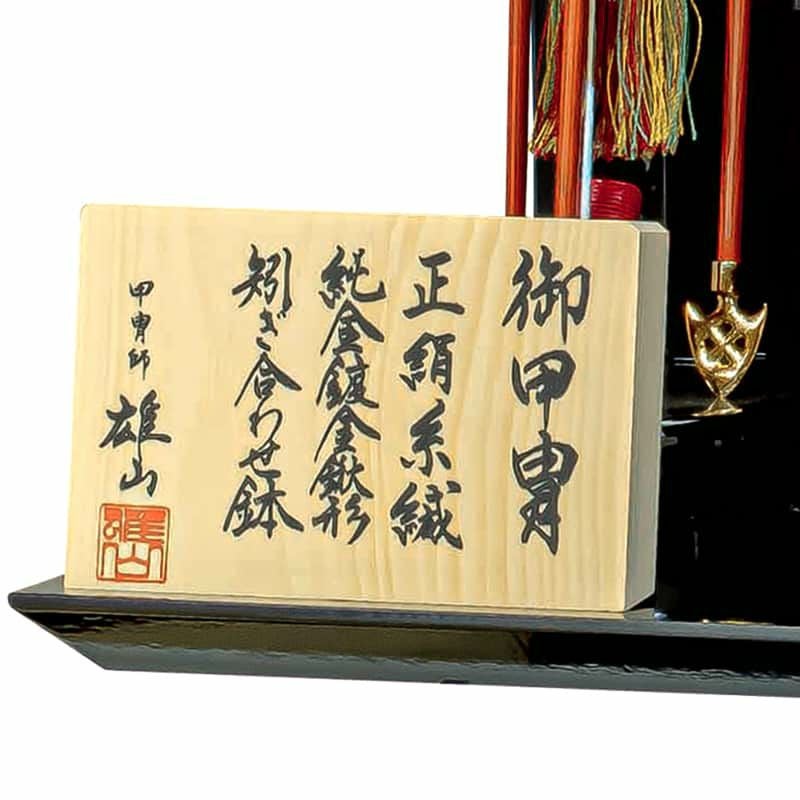 御甲冑
正絹糸縅
純金鍍金鍬形
矧ぎ合わせ鉢
甲冑師
雄山
雄山